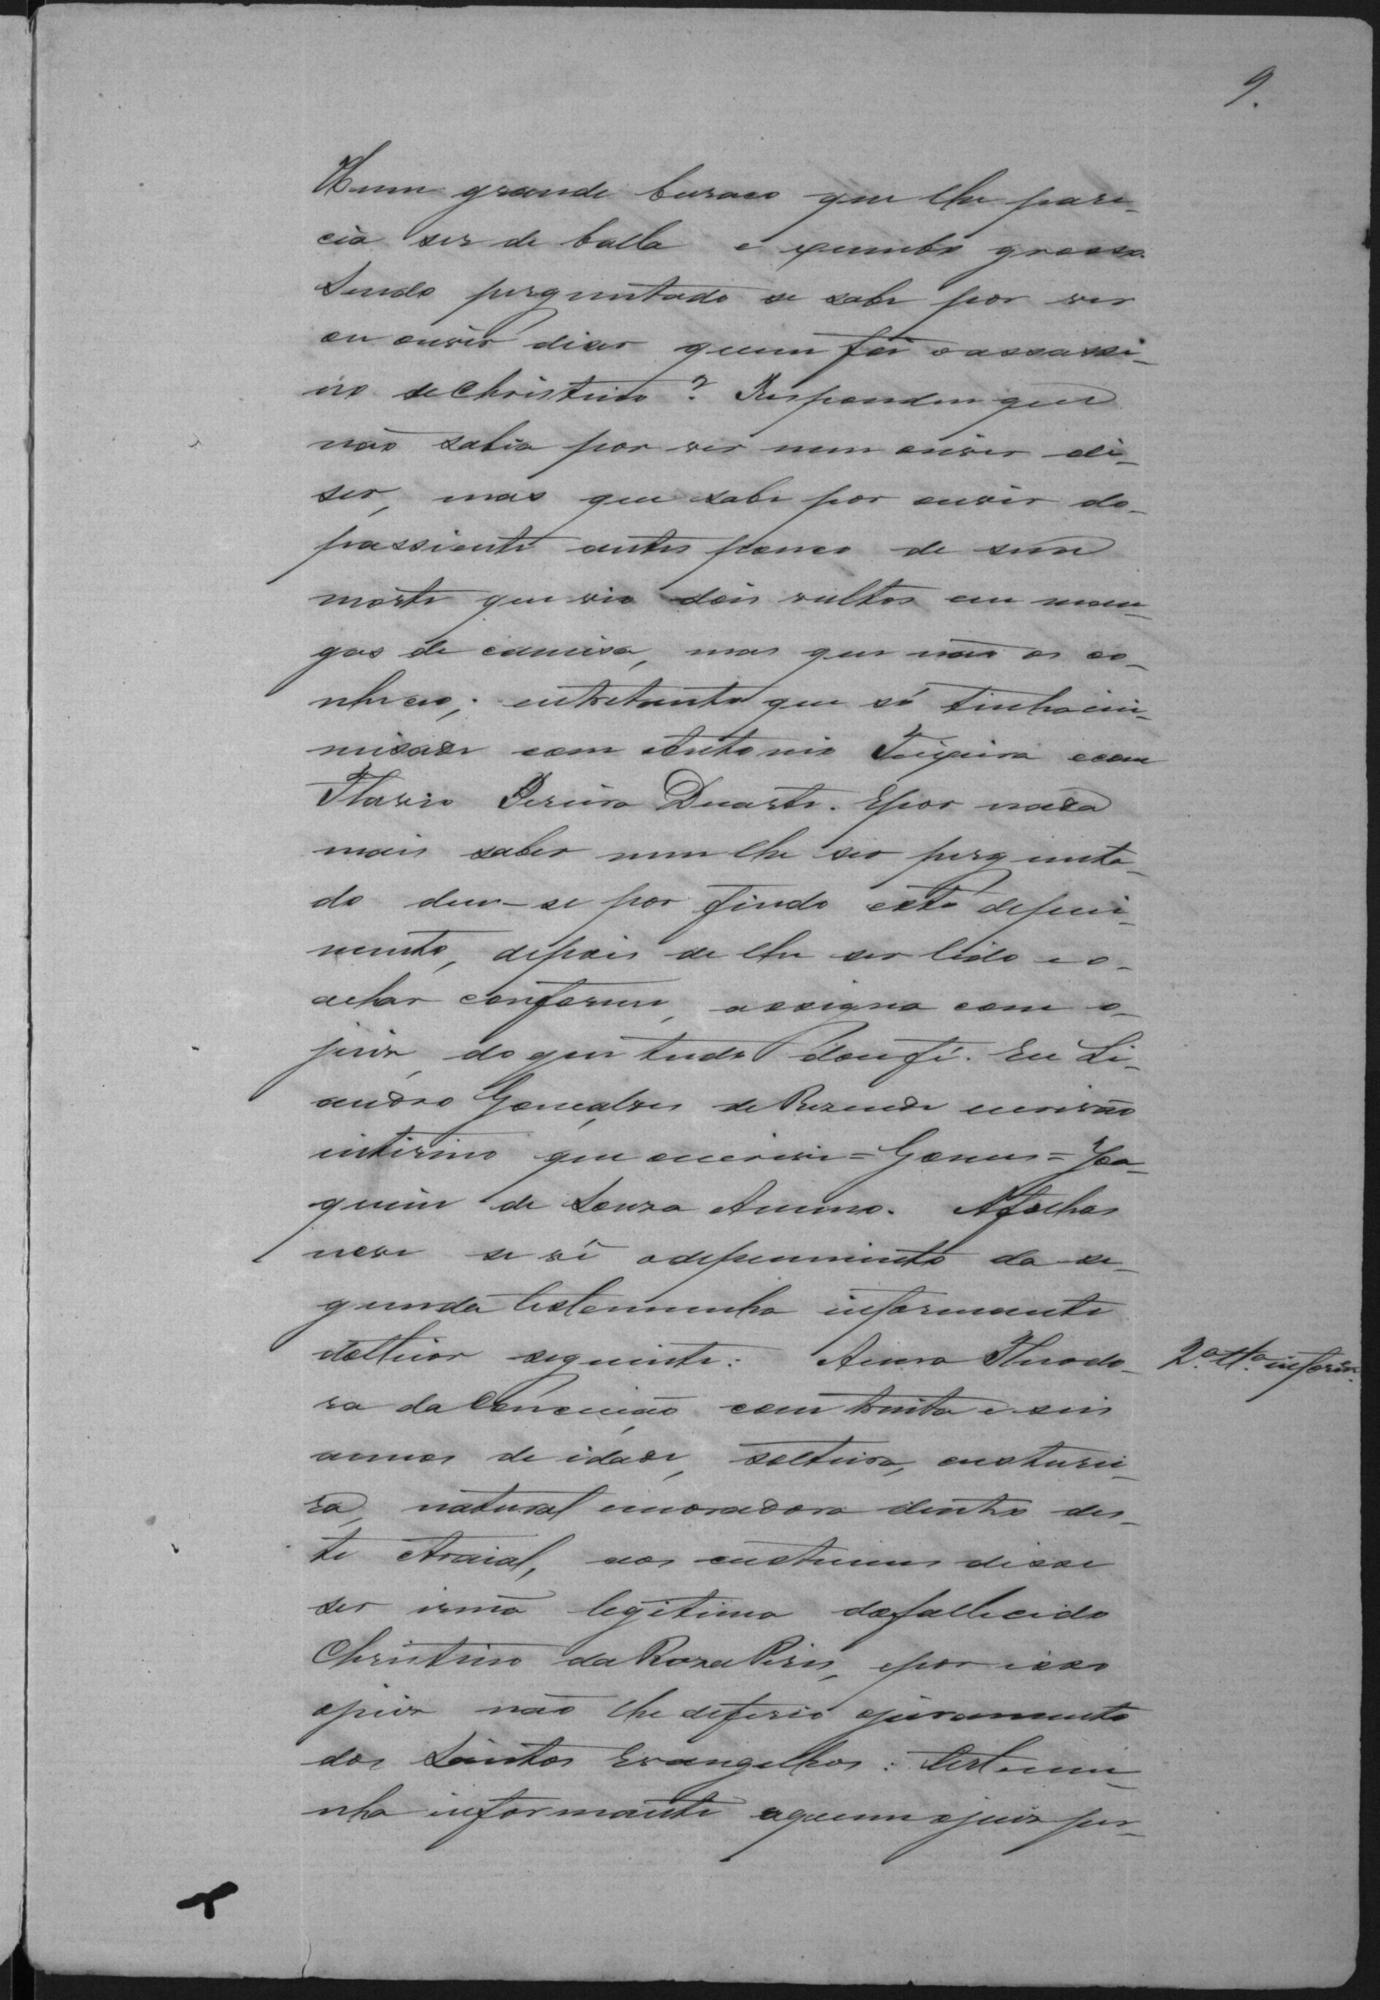 9.
Hum grande buraco que lhe pare-
cia ser de balla e xumbo grosso.
Sendo perguntado se sabe por ver
ou ouvir diser quem foi o assassi-
no de Christino? Respondeu que
não sabia por ver nem ouvir di-
ser, mas que sabe por ouvir do
passiente antes pouco de sua
morte que vio dois vultos em man-
gas de camisa, mas que não os co-
nheceo; entretanto que só tinha ini-
misade com Antonio Teixeira e com
Flavio Pereira Duarte. E por nada
mais saber nem lhe ser pergunta-
do deu-se por findo este depoi-
mento, depois de lhe ser lido e o
achar conforme, assigna com o
juiz, do que tudo dou fé. Eu Li-
andro Gonçalves de Rezende escrivão
interino que escrevi = Gomes = Joa-
quim de Souza Ammo. A folhas
nove se vê o depuimento da se-
gunda testemunha informante
do theor seguinte: Anna Theodo-
ra da Conceição com trinta e seis
annos de idade, solteira, custurei-
ra, natural e moradora dentro des-
te Araial, aos custumes disse
ser irmã legitima do fallecido
Christino da Roza Pires, e por isso
o juiz não lhe deferio o juramento
dos Santos Evangelhos: testemu-
nha informante a quem o juiz per-
2.ª tt.ª inform.